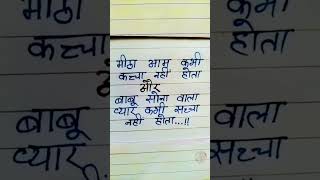 मीठा आम कभी
कच्चा नहीं होता
और
बाबू सोना वाला
प्यार कभी सच्चा
नहीं होता...!!